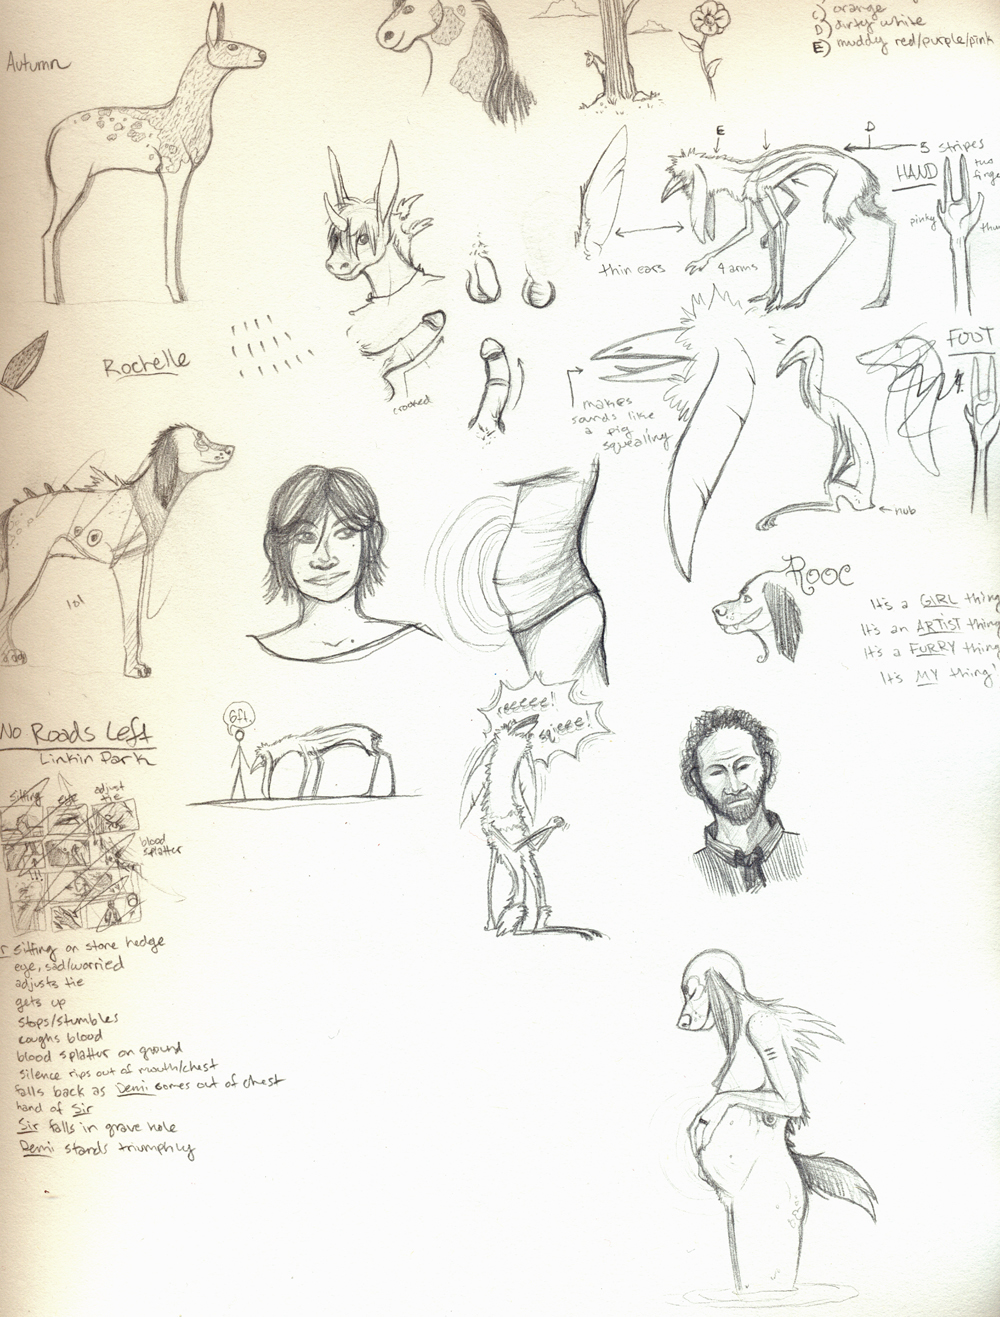 C) orange
D) dirty white
E) muddy red/purple/pink
Autumn
E
D
3 stripes
HAND
two
finge
pinky
thu
thin ears
4 arms
Rochelle
crooked
makes
sounds like
a pig
squealing
FOOT
nub
lol
Rooc
It's a GIRL thing
It's an ARTIST thing
It's a FURRY thing
It's MY thing!
No Roads Left
Linkin Park
6ft.
reeeee!!
squeee!
sitting
eye
adjust
tie
blood
splatter
r sitting on stone hedge
eye, sad/worried
adjusts tie
gets up
stops/stumbles
coughs blood
blood splatter on ground
silence rips out of mouth/chest
falls back as Demi comes out of chest
hand of Sir
Sir falls in grave hole
Demi stands triumphly